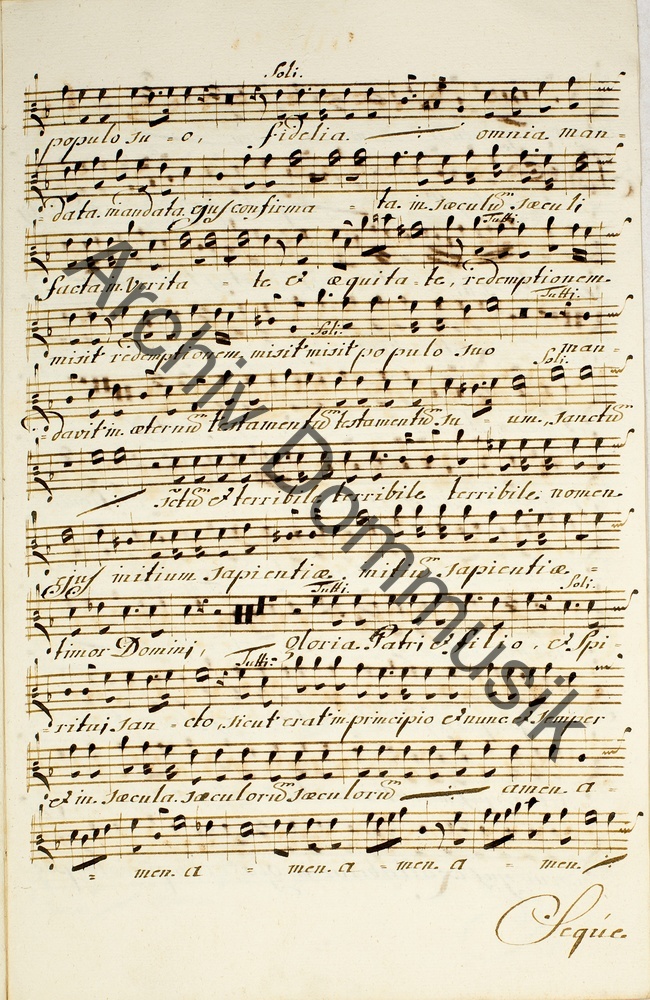 Soli.
populo su = o, fidelia. omnia man =
= data mandata ejus confirma = ta in sæculum sæculi
Tutti.
facta in Verita = te et æquita = te, redemptionem
Tutti.
Soli.
misit redemptionem misit misit populo suo man =
Soli.
= davit in æternum testamentum testamentum su = um, sanctum
et terribile terribile terribile nomen
ejus initium sapientiæ initium sapientiæ =
Tutti. Soli.
timor Domini, gloria Patri et filio, et Spi =
Tutti.
= ritui san = cto, sicut erat in principio et nunc et semper
et in sæcula sæculorum sæculorum amen a =
= men a = men a = men a = men.
Seque.
Archiv Dommusik